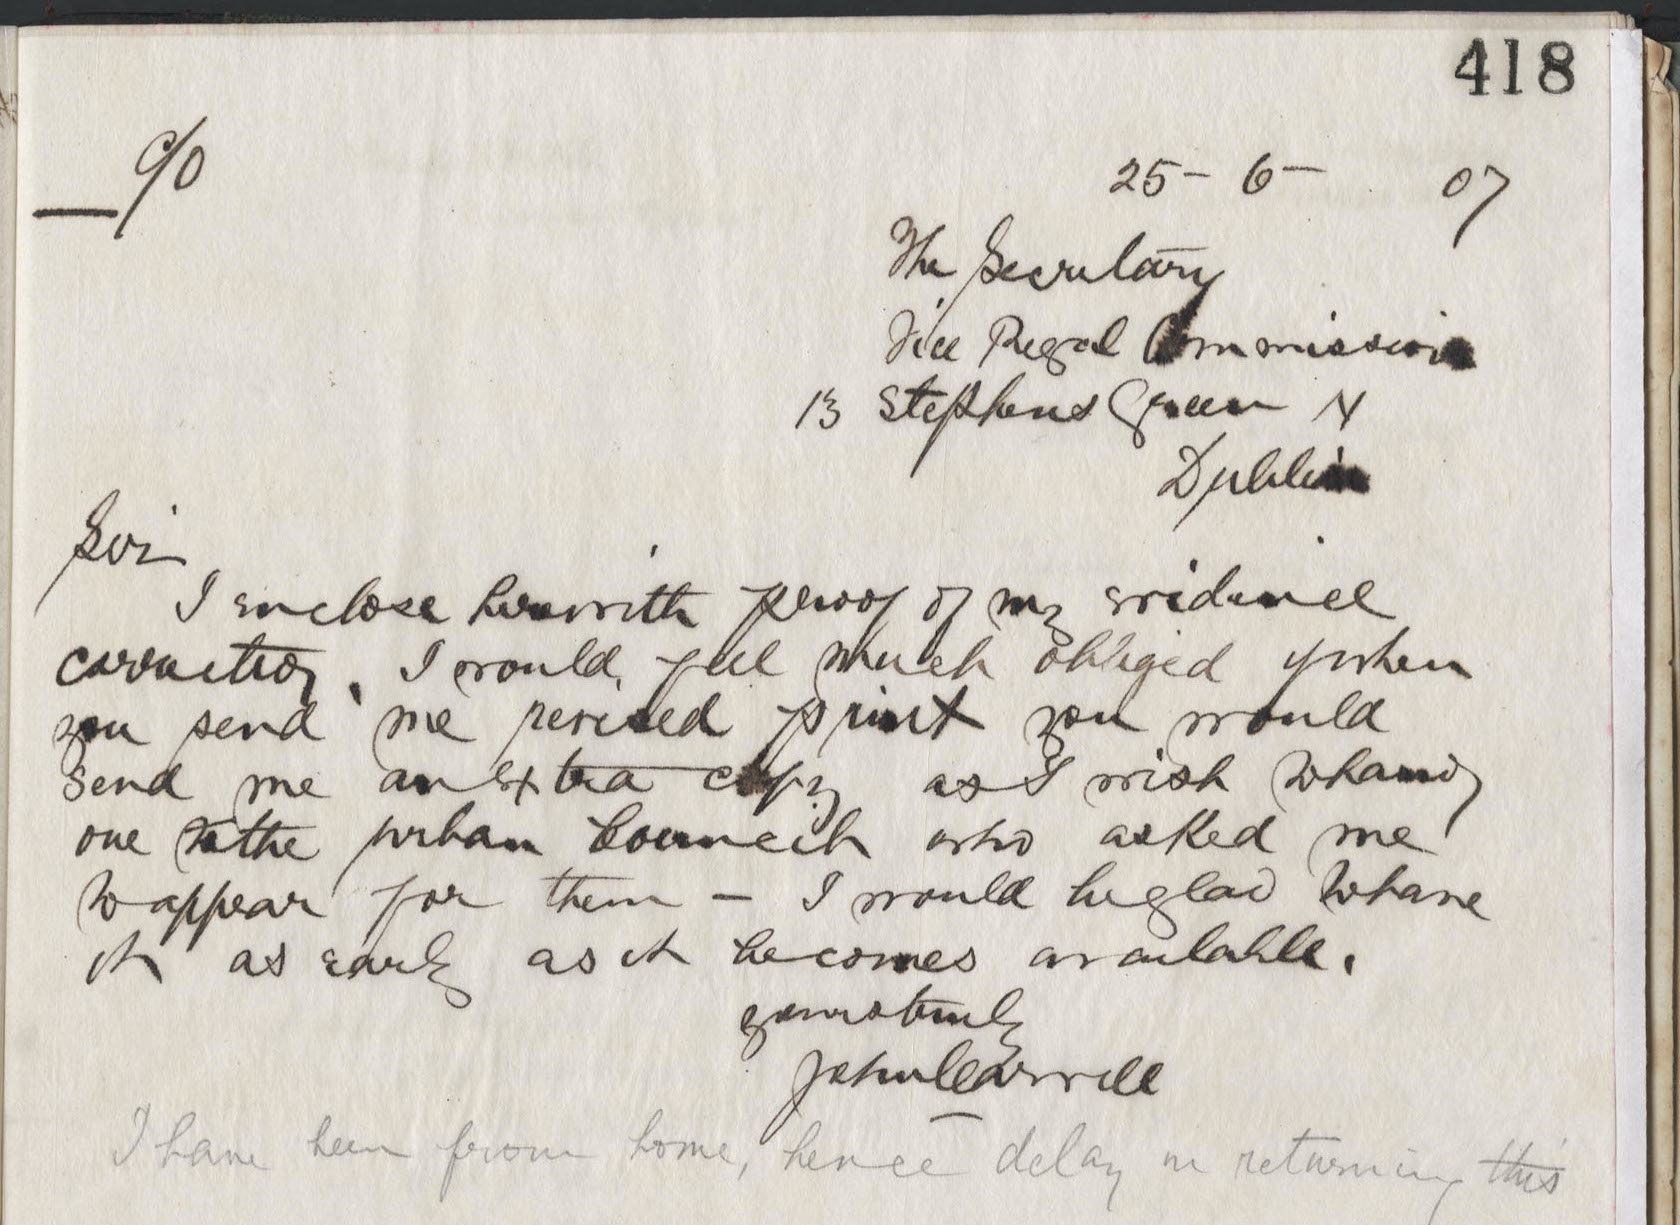 418
c/o
25 - 6 - 07
The Secretary
Vice Regal Commission
13 Stephens Green N
Dublin
Sir
I enclose herewith proof of my evidence
correction. I would feel much obliged if when
you send me revised print you would
send me an extra copy as I wish to hand
one to the Urban Council who asked me
to appear for them – I would be glad to have
it as early as it becomes available.
yours truly
John
I have been from home, hence delay in returning this